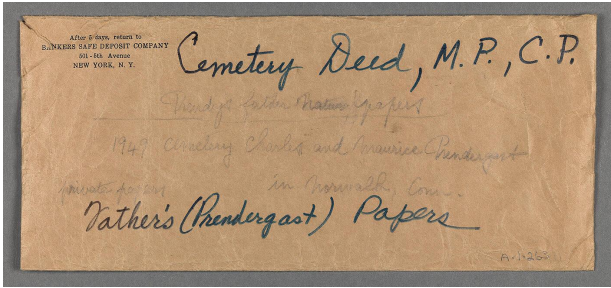 After 5 days, return to
BANKERS SAFE DEPOSIT COMPANY
501-5th Avenue
NEW YORK, N. Y.
Cemetery Deed, M.P., C.P.
father papers
1949 Cemetery Charles and Maurice Prendergast
private papers in Norwalk, Conn.
Father's (Prendergast) Papers